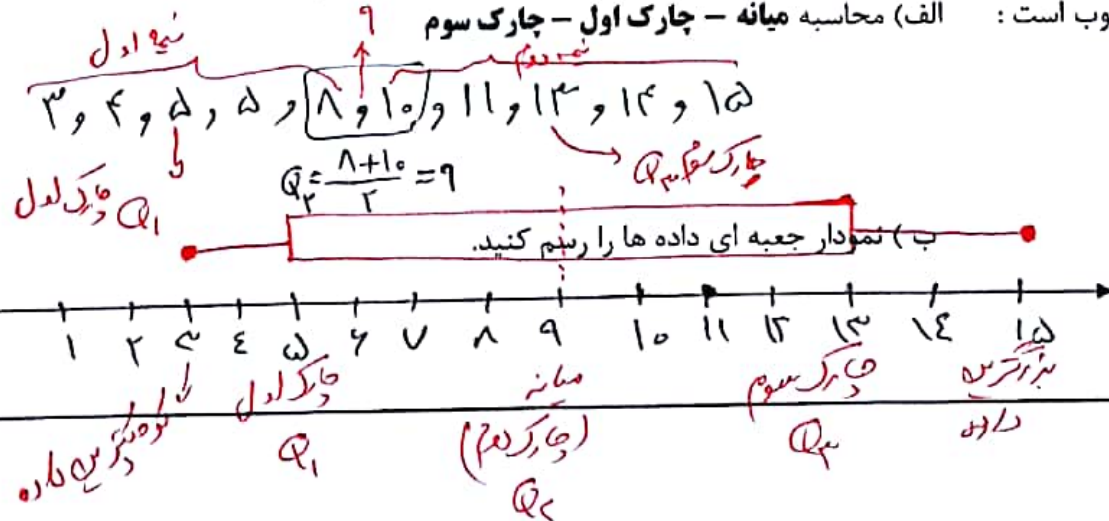 وب است : الف) محاسبه میانه – چارک اول – چارک سوم
۹
نیمه اول نیمه دوم
۳ و ۴ و ۵ و ۵ و ۸ و ۱۰ و ۱۱ و ۱۳ و ۱۴ و ۱۵
Q۲ = ۸+۱۰/۲ = ۹
Q۳ چارک سوم
چارک اول Q۱
ب ) نمودار جعبه ای داده ها را رسم کنید.
۱ ۲ ۳ ٤ ۵ ۶ ۷ ۸ ۹ ۱۰ ۱۱ ۱۲ ۱۳ ۱٤ ۱۵
کوچکترین داده
چارک اول
Q۱
میانه
(چارک دوم)
Q۲
چارک سوم
Q۳
بزرگترین
داده